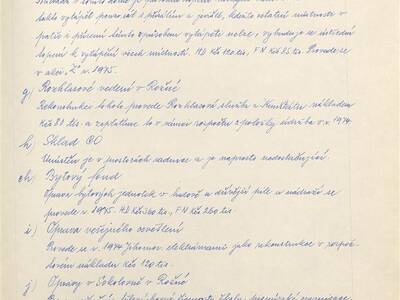 takto vytápět pouze sál s předsálím a jeviště, kdežto ostatní místnosti v
patře a přízemí tímto způsobem vytápět nelze, vybuduje se ústřední
topení k vytápění všech místností. HD Kčs 120 tis., FN Kčs 85 tis. Provede se
v akci „Z" v r. 1975.
g) Rozhlasové vedení v Rožné
Rekonstrukci tohoto provede Rozhlasová služba z nákladem
Kčs 80 tis. a zaplatíme to v rámci rozpočtu z položky údržba v r. 1974.
h) Sklad CO
Umístěn je v prostorách radnice a je naprosto nedostačující.
ch) Bytový fond
Oprava bytových jednotek v budově u dřívější pile u nádraží se
provede v r. 1975. HD Kčs 360 tis., FN Kčs 260 tis.
i) Oprava veřejného osvětlení
Provede se v r. 1974 Jihomor. elektrárnami jako rekonstrukce v rozpoč-
tovém nákladu Kčs 120 tis.
j) Opravy v Sokolovně v Rožné